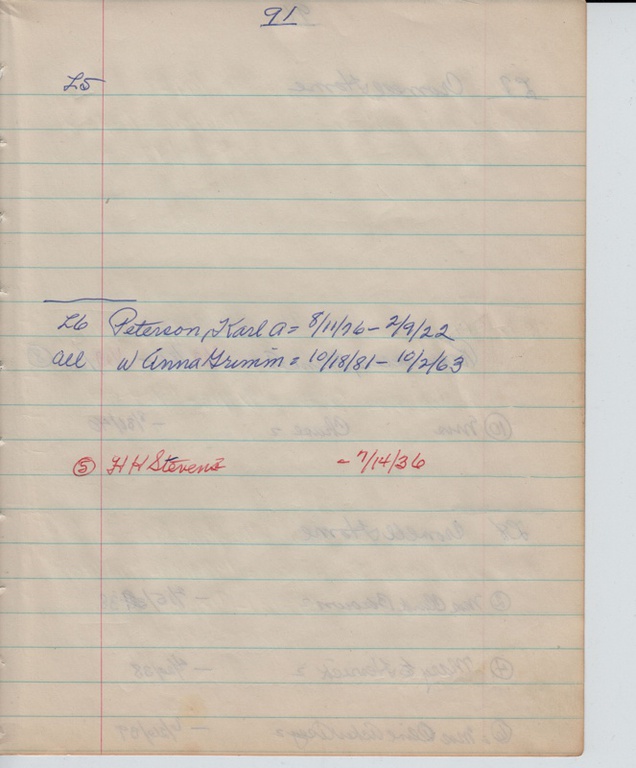 91
L5
L6 Peterson, Karl A = 8/11/76 - 2/9/22
all w Anna Grimm = 10/18/81 - 10/2/63
⑤ H H Stevens - 7/14/36